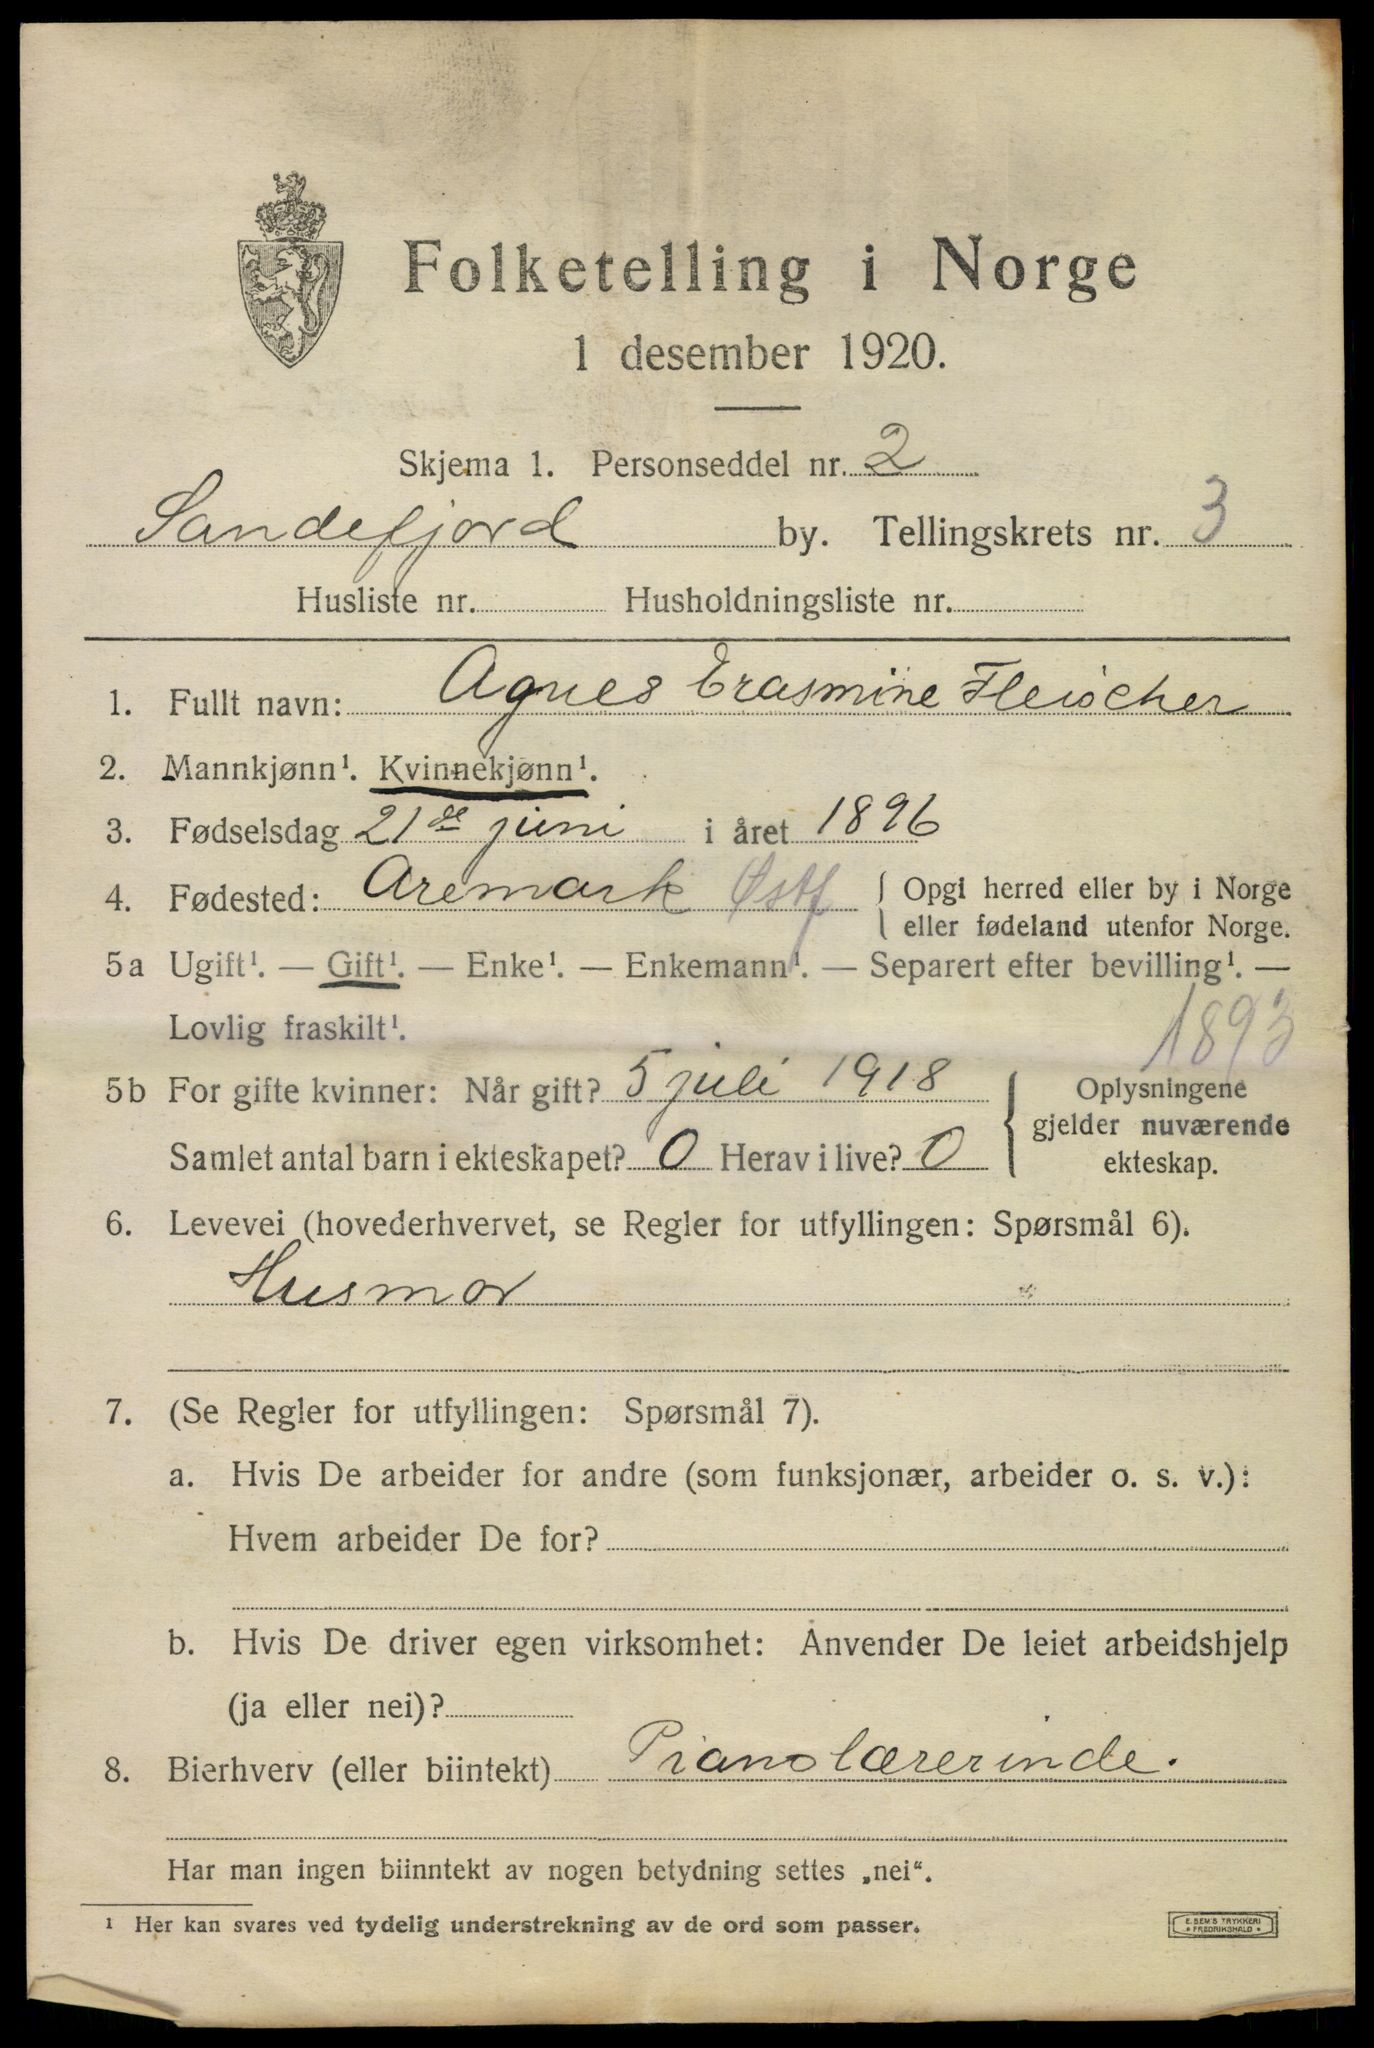 Folketelling i Norge
1 desember 1920.
Skjema 1. Personseddel nr. 2
Sandefjord by. Tellingskrets nr. 3
Husliste nr. Husholdningsliste nr.
1. Fullt navn: Agnes Erasmine Fleischer
2. Mannkjønn¹. Kvinnekjønn¹.
3. Fødselsdag 21de juni i året 1896
4. Fødested: Aremark Østf { Opgi herred eller by i Norge
eller fødeland utenfor Norge.
5a Ugift¹. — Gift¹. — Enke¹. — Enkemann¹. — Separert efter bevilling¹. —
Lovlig fraskilt¹. 1893
5b For gifte kvinner: Når gift? 5 juli 1918 } Oplysningene
gjelder nuværende
Samlet antal barn i ekteskapet? 0 Herav i live? 0 ekteskap.
6. Levevei (hovederhvervet, se Regler for utfyllingen: Spørsmål 6).
Husmor
7. (Se Regler for utfyllingen: Spørsmål 7).
a. Hvis De arbeider for andre (som funksjonær, arbeider o. s. v.):
Hvem arbeider De for?
b. Hvis De driver egen virksomhet: Anvender De leiet arbeidshjelp
(ja eller nei)?
8. Bierhverv (eller biintekt) Pianolærerinde.
Har man ingen biinntekt av nogen betydning settes „nei“.
¹ Her kan svares ved tydelig understrekning av de ord som passer.
E. SEM'S TRYKKERI
* FREDRIKSHALD *